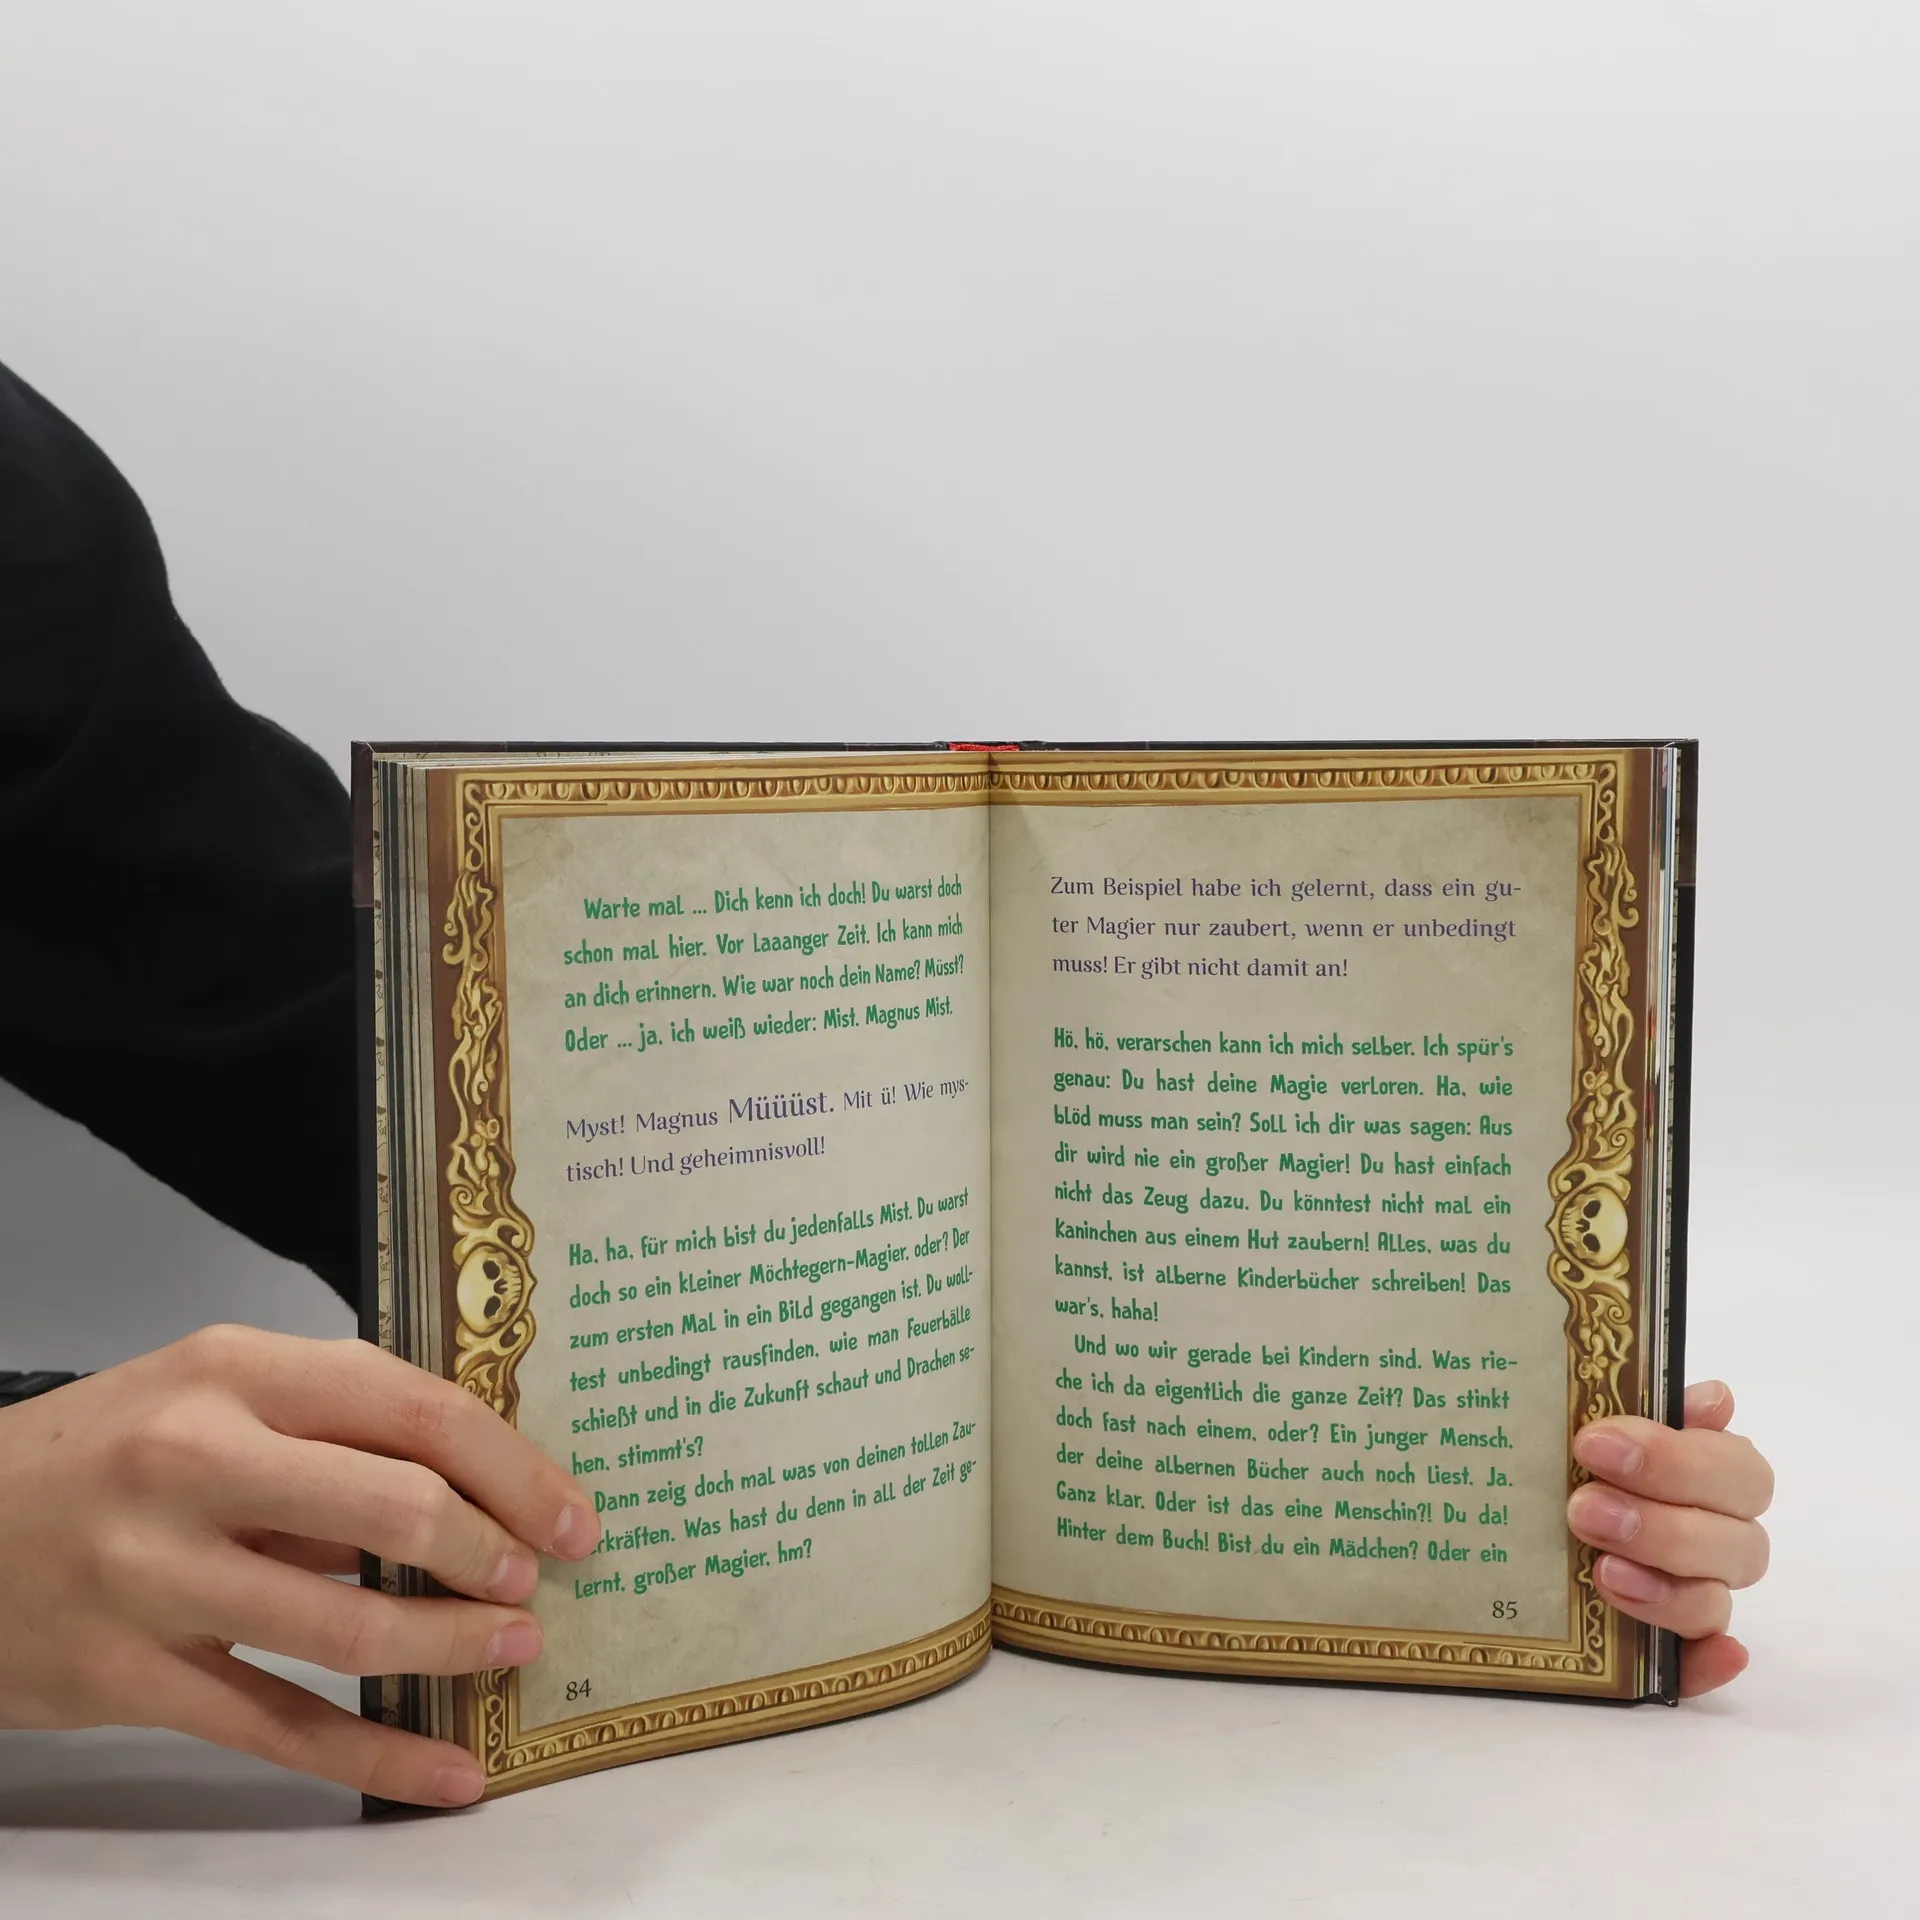 Warte mal ... Dich kenn ich doch! Du warst doch
schon mal hier. Vor Laaanger Zeit. Ich kann mich
an dich erinnern. Wie war noch dein Name? Müsst?
Oder ... ja, ich weiß wieder: Mist. Magnus Mist.
Myst! Magnus Müüüst. Mit ü! Wie mys-
tisch! Und geheimnisvoll!
Ha, ha, für mich bist du jedenfalls Mist. Du warst
doch so ein kleiner Möchtegern-Magier, oder? Der
zum ersten Mal in ein Bild gegangen ist. Du woll-
test unbedingt rausfinden, wie man Feuerbälle
schießt und in die Zukunft schaut und Drachen se-
hen, stimmt's?
Dann zeig doch mal was von deinen tollen Zau-
rkräften. Was hast du denn in all der Zeit ge-
lernt, großer Magier, hm?
84
Zum Beispiel habe ich gelernt, dass ein gu-
ter Magier nur zaubert, wenn er unbedingt
muss! Er gibt nicht damit an!
Hö, hö, verarschen kann ich mich selber. Ich spür's
genau: Du hast deine Magie verloren. Ha, wie
blöd muss man sein? Soll ich dir was sagen: Aus
dir wird nie ein großer Magier! Du hast einfach
nicht das Zeug dazu. Du könntest nicht mal ein
Kaninchen aus einem Hut zaubern! Alles, was du
kannst, ist alberne Kinderbücher schreiben! Das
war's, haha!
Und wo wir gerade bei Kindern sind. Was rie-
che ich da eigentlich die ganze Zeit? Das stinkt
doch fast nach einem, oder? Ein junger Mensch,
der deine albernen Bücher auch noch liest. Ja.
Ganz klar. Oder ist das eine Menschin?! Du da!
Hinter dem Buch! Bist du ein Mädchen? Oder ein
85